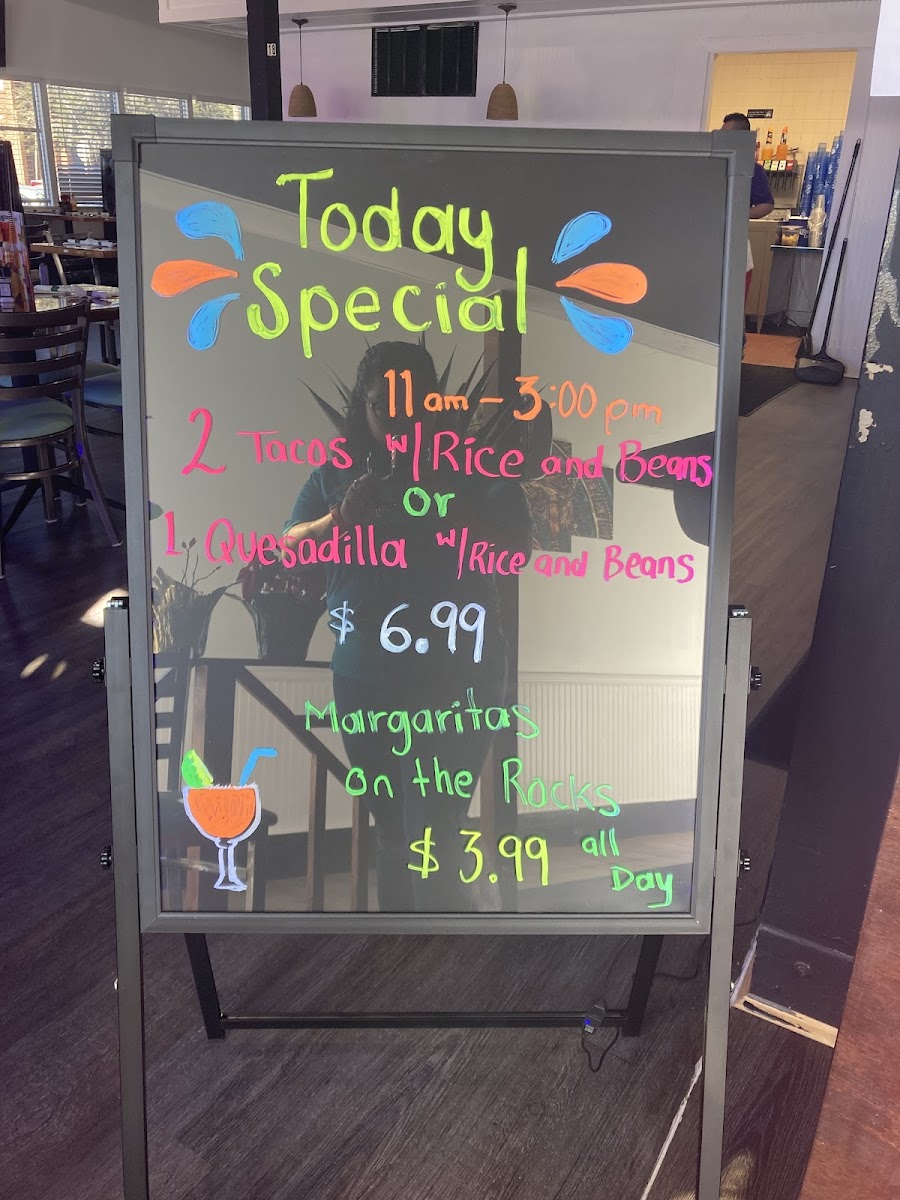 Today
Special
11 am - 3:00 pm
2 Tacos w/Rice and Beans
or
1 Quesadilla w/Rice and Beans
$ 6.99
Margaritas
on the Rocks
$ 3.99 all
Day